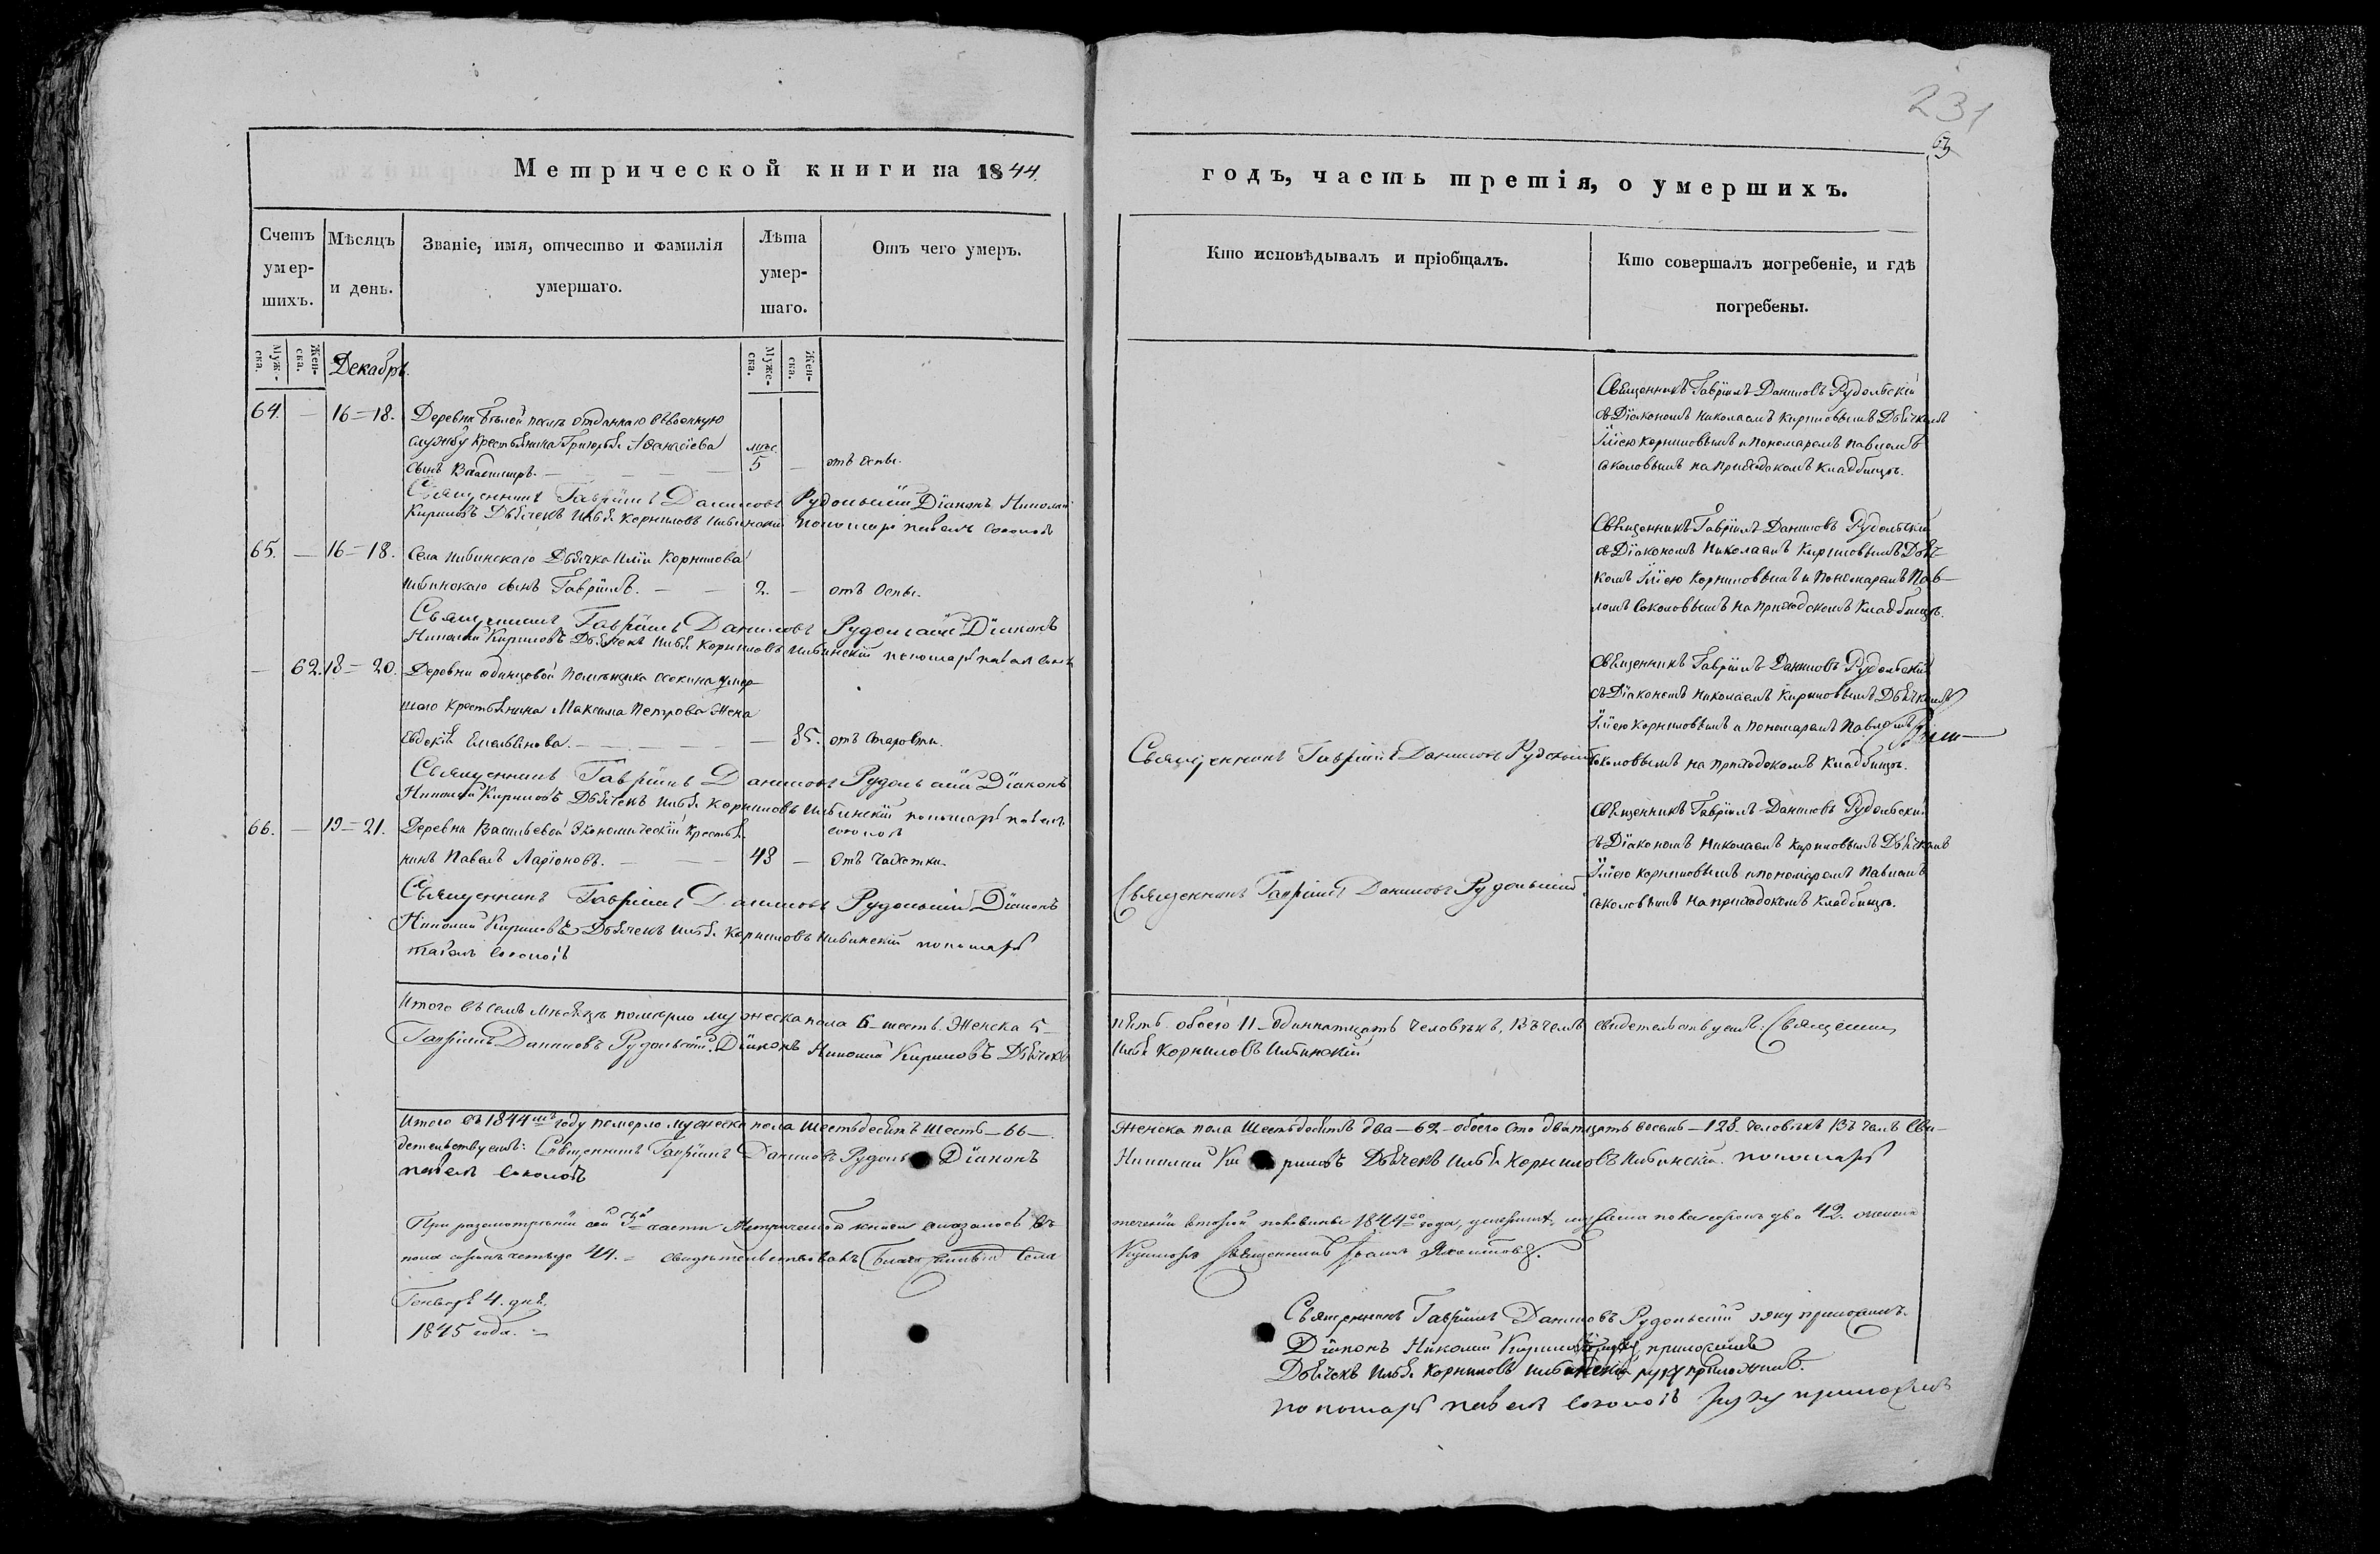 231
63
Метрической книги на 1844.
годъ, часть третія, о умершихъ.
Счетъ умер-шихъ.
Мѣсяцъ и день.
Званіе, имя, отчество и фамилія умершаго.
Лѣта умер-шаго.
Отъ чего умеръ.
Кто исповѣдывалъ и пріобщалъ.
Кто совершалъ погребеніе, и гдѣ погребены.
Муж-ска.
Жен-ска.
Декабрь.
Муже-ска.
Жен-ска.
64. — 16=18. Деревни Белой отданнаго въ военную
службу крестьянина Григорья Афанасіева мѣс.
сынъ Владимиръ. — 5 — отъ оспы.
Священникъ Гавріилъ Даниловъ Рудольскій Діаконъ Николай
Кириловъ Дьячекъ Илья Корниловъ Ильинскій пономарь павелъ соколовъ
Священникъ Гавріилъ Даниловъ Рудольскій
съ Діакономъ Николаемъ Кириловымъ Дьячкомъ
Ильею Корниловымъ и Пономаремъ Павломъ
соколовымъ на приходскомъ кладбищѣ.
65. — 16=18. Села Ильинскаго Дьячка Иліи Корнилова
Ильинскаго сынъ Гавріилъ. — 2. — отъ оспы.
Священникъ Гавріилъ Даниловъ Рудольскій Діаконъ
Николай Кириловъ Дьячекъ Илья Корниловъ Ильинскій пономарь павелъ
Священникъ Гавріилъ Даниловъ Рудольскій
съ Діакономъ Николаемъ Кириловымъ Дьяч-
комъ Ильею Корниловымъ и Пономаремъ Пав-
ломъ Соколовымъ на приходскомъ кладбищѣ.
— 62. 18=20. Деревни Одинцовой помѣщика Осокина умер-
шаго крестьянина Максима Петрова жена
Евдокія Емельянова. — — 85. отъ старости.
Священникъ Гавріилъ Даниловъ Рудольскій Діаконъ
Николай Кириловъ Дьячекъ Илья Корниловъ Ильинскій пономарь павелъ
соколовъ
Священникъ Гавріилъ Даниловъ Рудольскій
Священникъ Гавріилъ Даниловъ Рудольскій
съ Діакономъ Николаемъ Кириловымъ Дьячкомъ
Ильею Корниловымъ и пономаремъ Павломъ
Соколовымъ на приходскомъ кладбищѣ.
66. — 19=21. Деревни Васильевой экономическій крестья-
нинъ Павелъ Ларіоновъ. — 48 — отъ чахотки.
Священникъ Гавріилъ Даниловъ Рудольскій Діаконъ
Николай Кириловъ Дьячекъ Илья Корниловъ Ильинскій пономарь
павелъ соколовъ
Священникъ Гавріилъ Даниловъ Рудольскій
Священникъ Гавріилъ Даниловъ Рудольскій
съ Діакономъ Николаемъ Кириловымъ Дьячкомъ
Ильею Корниловымъ и пономаремъ Павломъ
соколовымъ на приходскомъ кладбищѣ.
Итого въ семъ мѣсяцѣ померло мужеска пола 6 — шесть. Женска 5 —
пять. обоего 11 — одиннатцать человѣкъ, въ чемъ свидетельствуемъ: Священникъ
Гавріилъ Даниловъ Рудольскій. Діаконъ Николай Кириловъ Дьячекъ
Илья Корниловъ Ильинскій
Итого въ 1844мъ году померло мужеска пола шестьдесятъ шесть — 66 —
женска пола шестьдесятъ два — 62 — обоего сто дватцать восемь — 128. человѣкъ въ чемъ Сви-
детельствуемъ: Священникъ Гавріилъ Даниловъ Рудоль Діаконъ
Николай Ки риловъ Дьячекъ Илья Корниловъ Ильинскій. пономарь
павелъ соколовъ
При разсмотреніи сей 3й части Метрической книги оказалось въ
теченіи второй половины 1844го года, умершихъ мужеска пола сорокъ два 42. женска
пола сорокъ четыре 44. = свидѣтельствовалъ села
Священникъ Іоаннъ
Генваря 4. дня.
1845 года. =
Священникъ Гавріилъ Даниловъ Рудольскій руку приложилъ.
Діаконъ Николай Кириловъ руку приложилъ
Дьячекъ Илья Корниловъ Ильинскій руку приложилъ.
пономарь павелъ соколовъ руку приложилъ